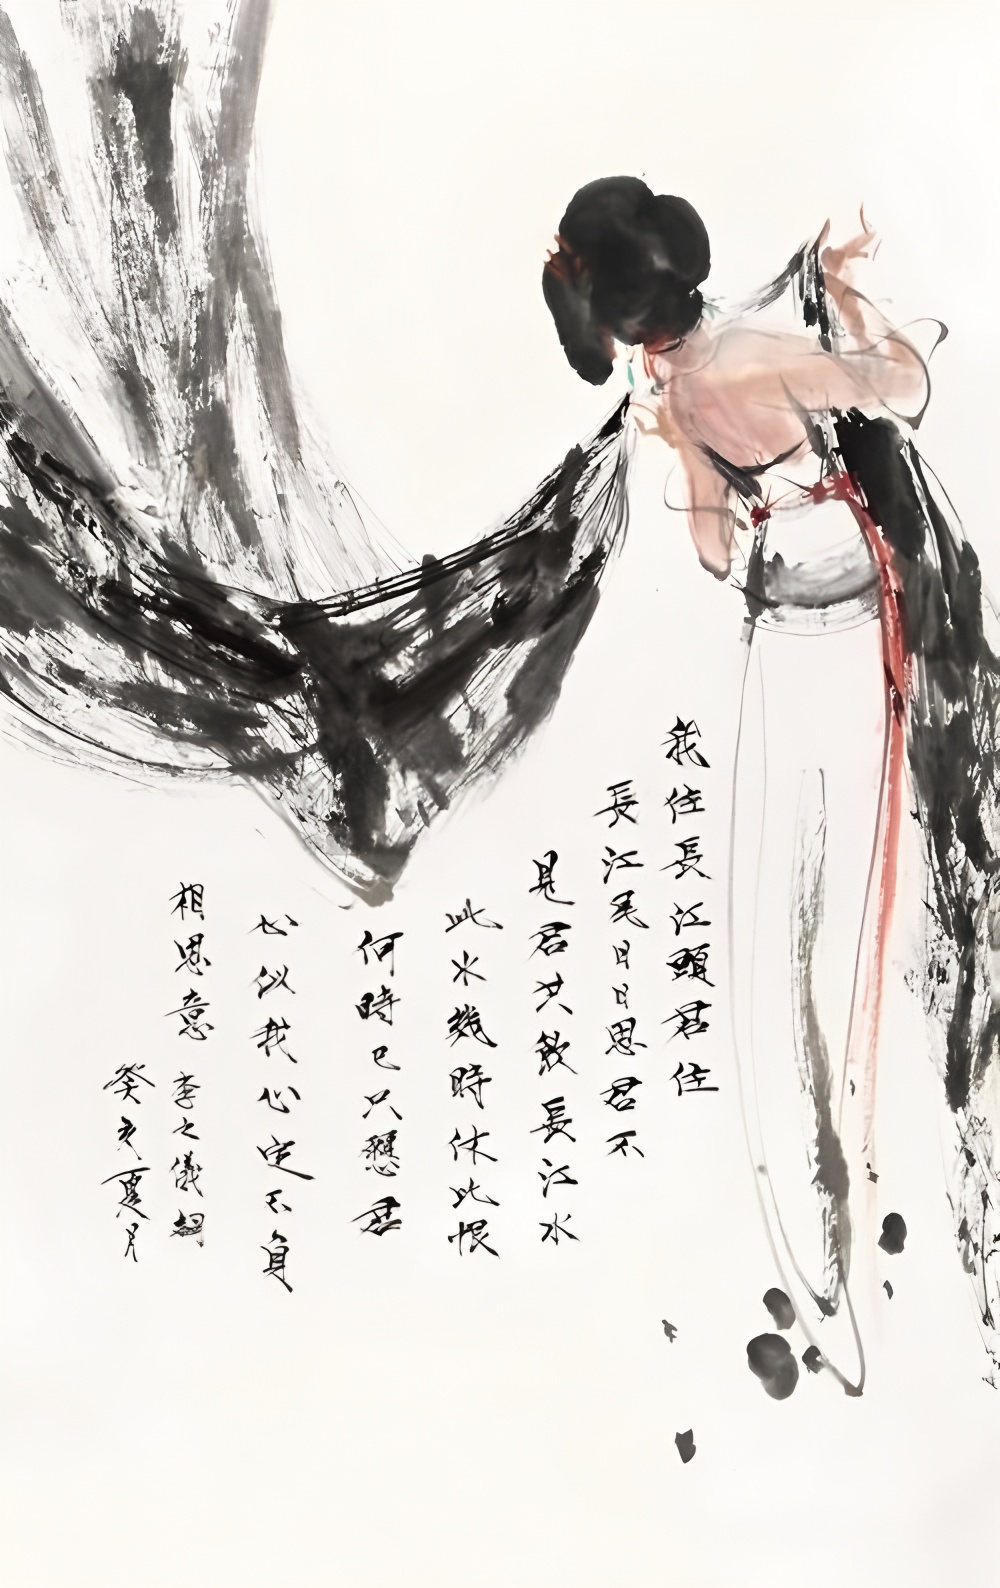 我住長江頭君住
長江尾日日思君不
見君共飲長江水
此水幾時休此恨
何時已只懸君
心似我心定不負
相思意 李之儀詞
癸亥夏月